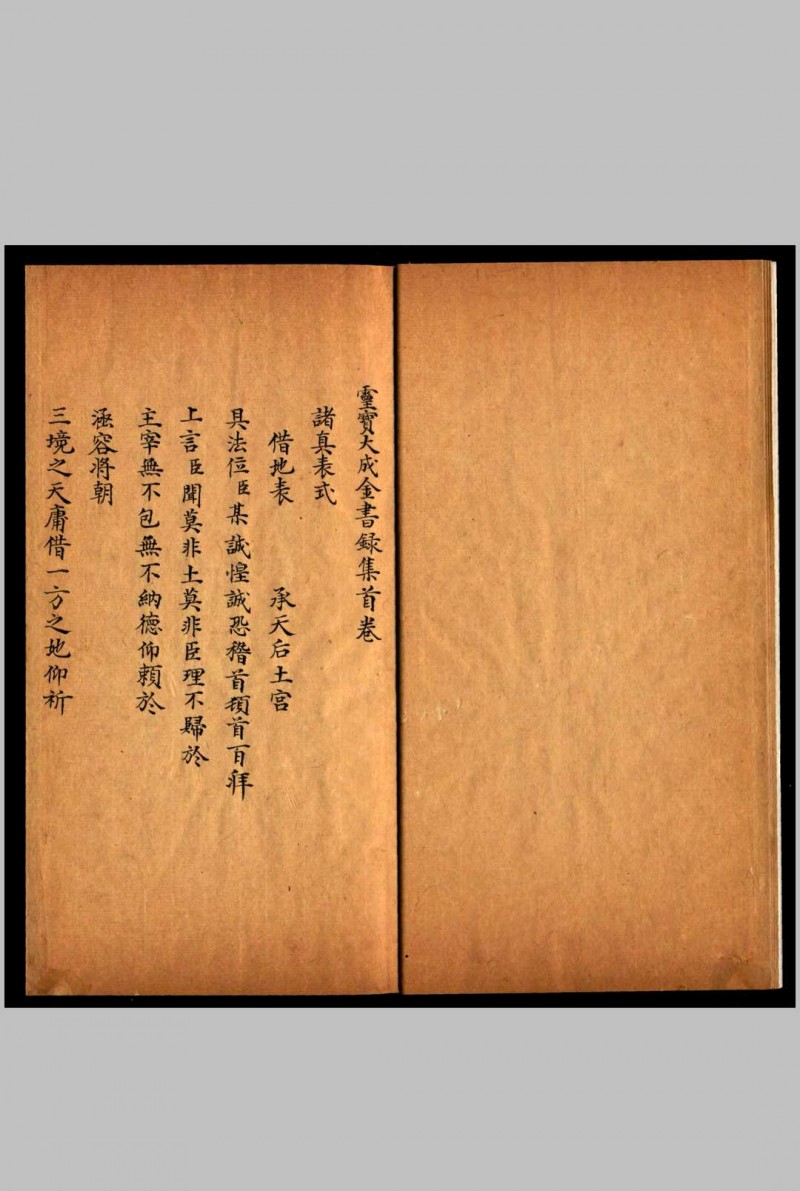 靈寶大成金書録集首卷
諸真表式
借地表　承天后土宫
具法位臣某誠惶誠恐稽首頓首百拜
上言臣聞莫非土莫非臣理不歸於
主宰無不包無不納德仰賴於
涵容將朝
三境之天庸借一方之地仰祈